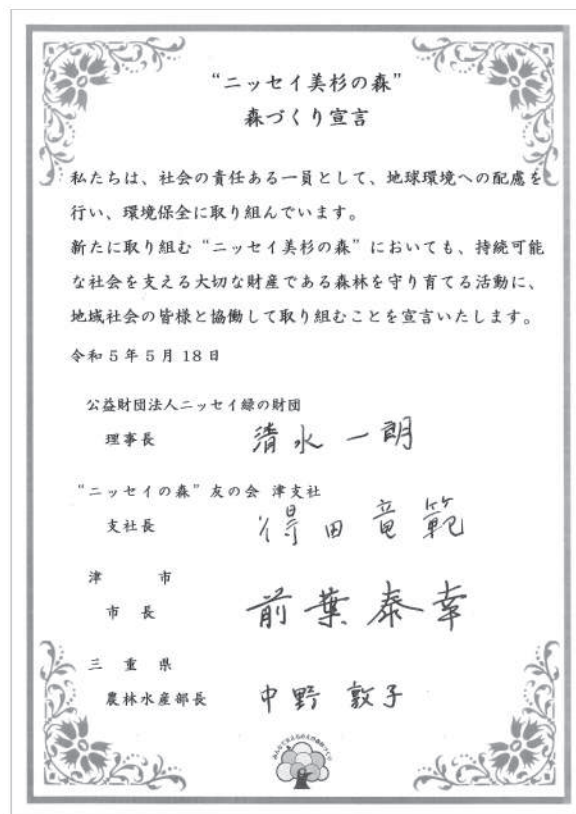 “ニッセイ美杉の森”
森づくり宣言
私たちは、社会の責任ある一員として、地球環境への配慮を
行い、環境保全に取り組んでいます。
新たに取り組む“ニッセイ美杉の森”においても、持続可能
な社会を支える大切な財産である森林を守り育てる活動に、
地域社会の皆様と協働して取り組むことを宣言いたします。
令和5年5月18日
公益財団法人ニッセイ緑の財団
理事長 清水一朗
“ニッセイの森”友の会 津支社
支社長 得田竜範
津市
市長 前葉泰幸
三重県
農林水産部長 中野敦子